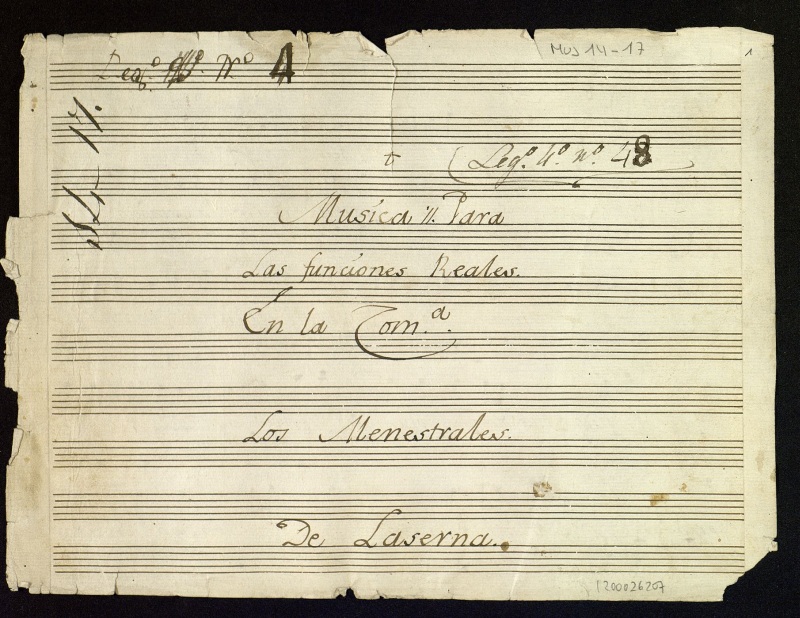 MUS 14-17
1
Leg.º Nº 4
14-17.
Leg.º 4.º n.º 48
Musica ,,. Para
Las funciones Reales.
En la Com.ª
Los Menestrales.
De Laserna.
1200026207